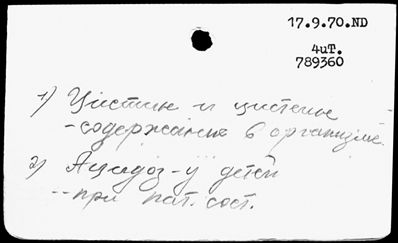 17.9.70.ND
4иТ.
789360
1) Цистин и цистеин
-содержание в организме.
2) Ацидоз-у детей
--при пат. сост.